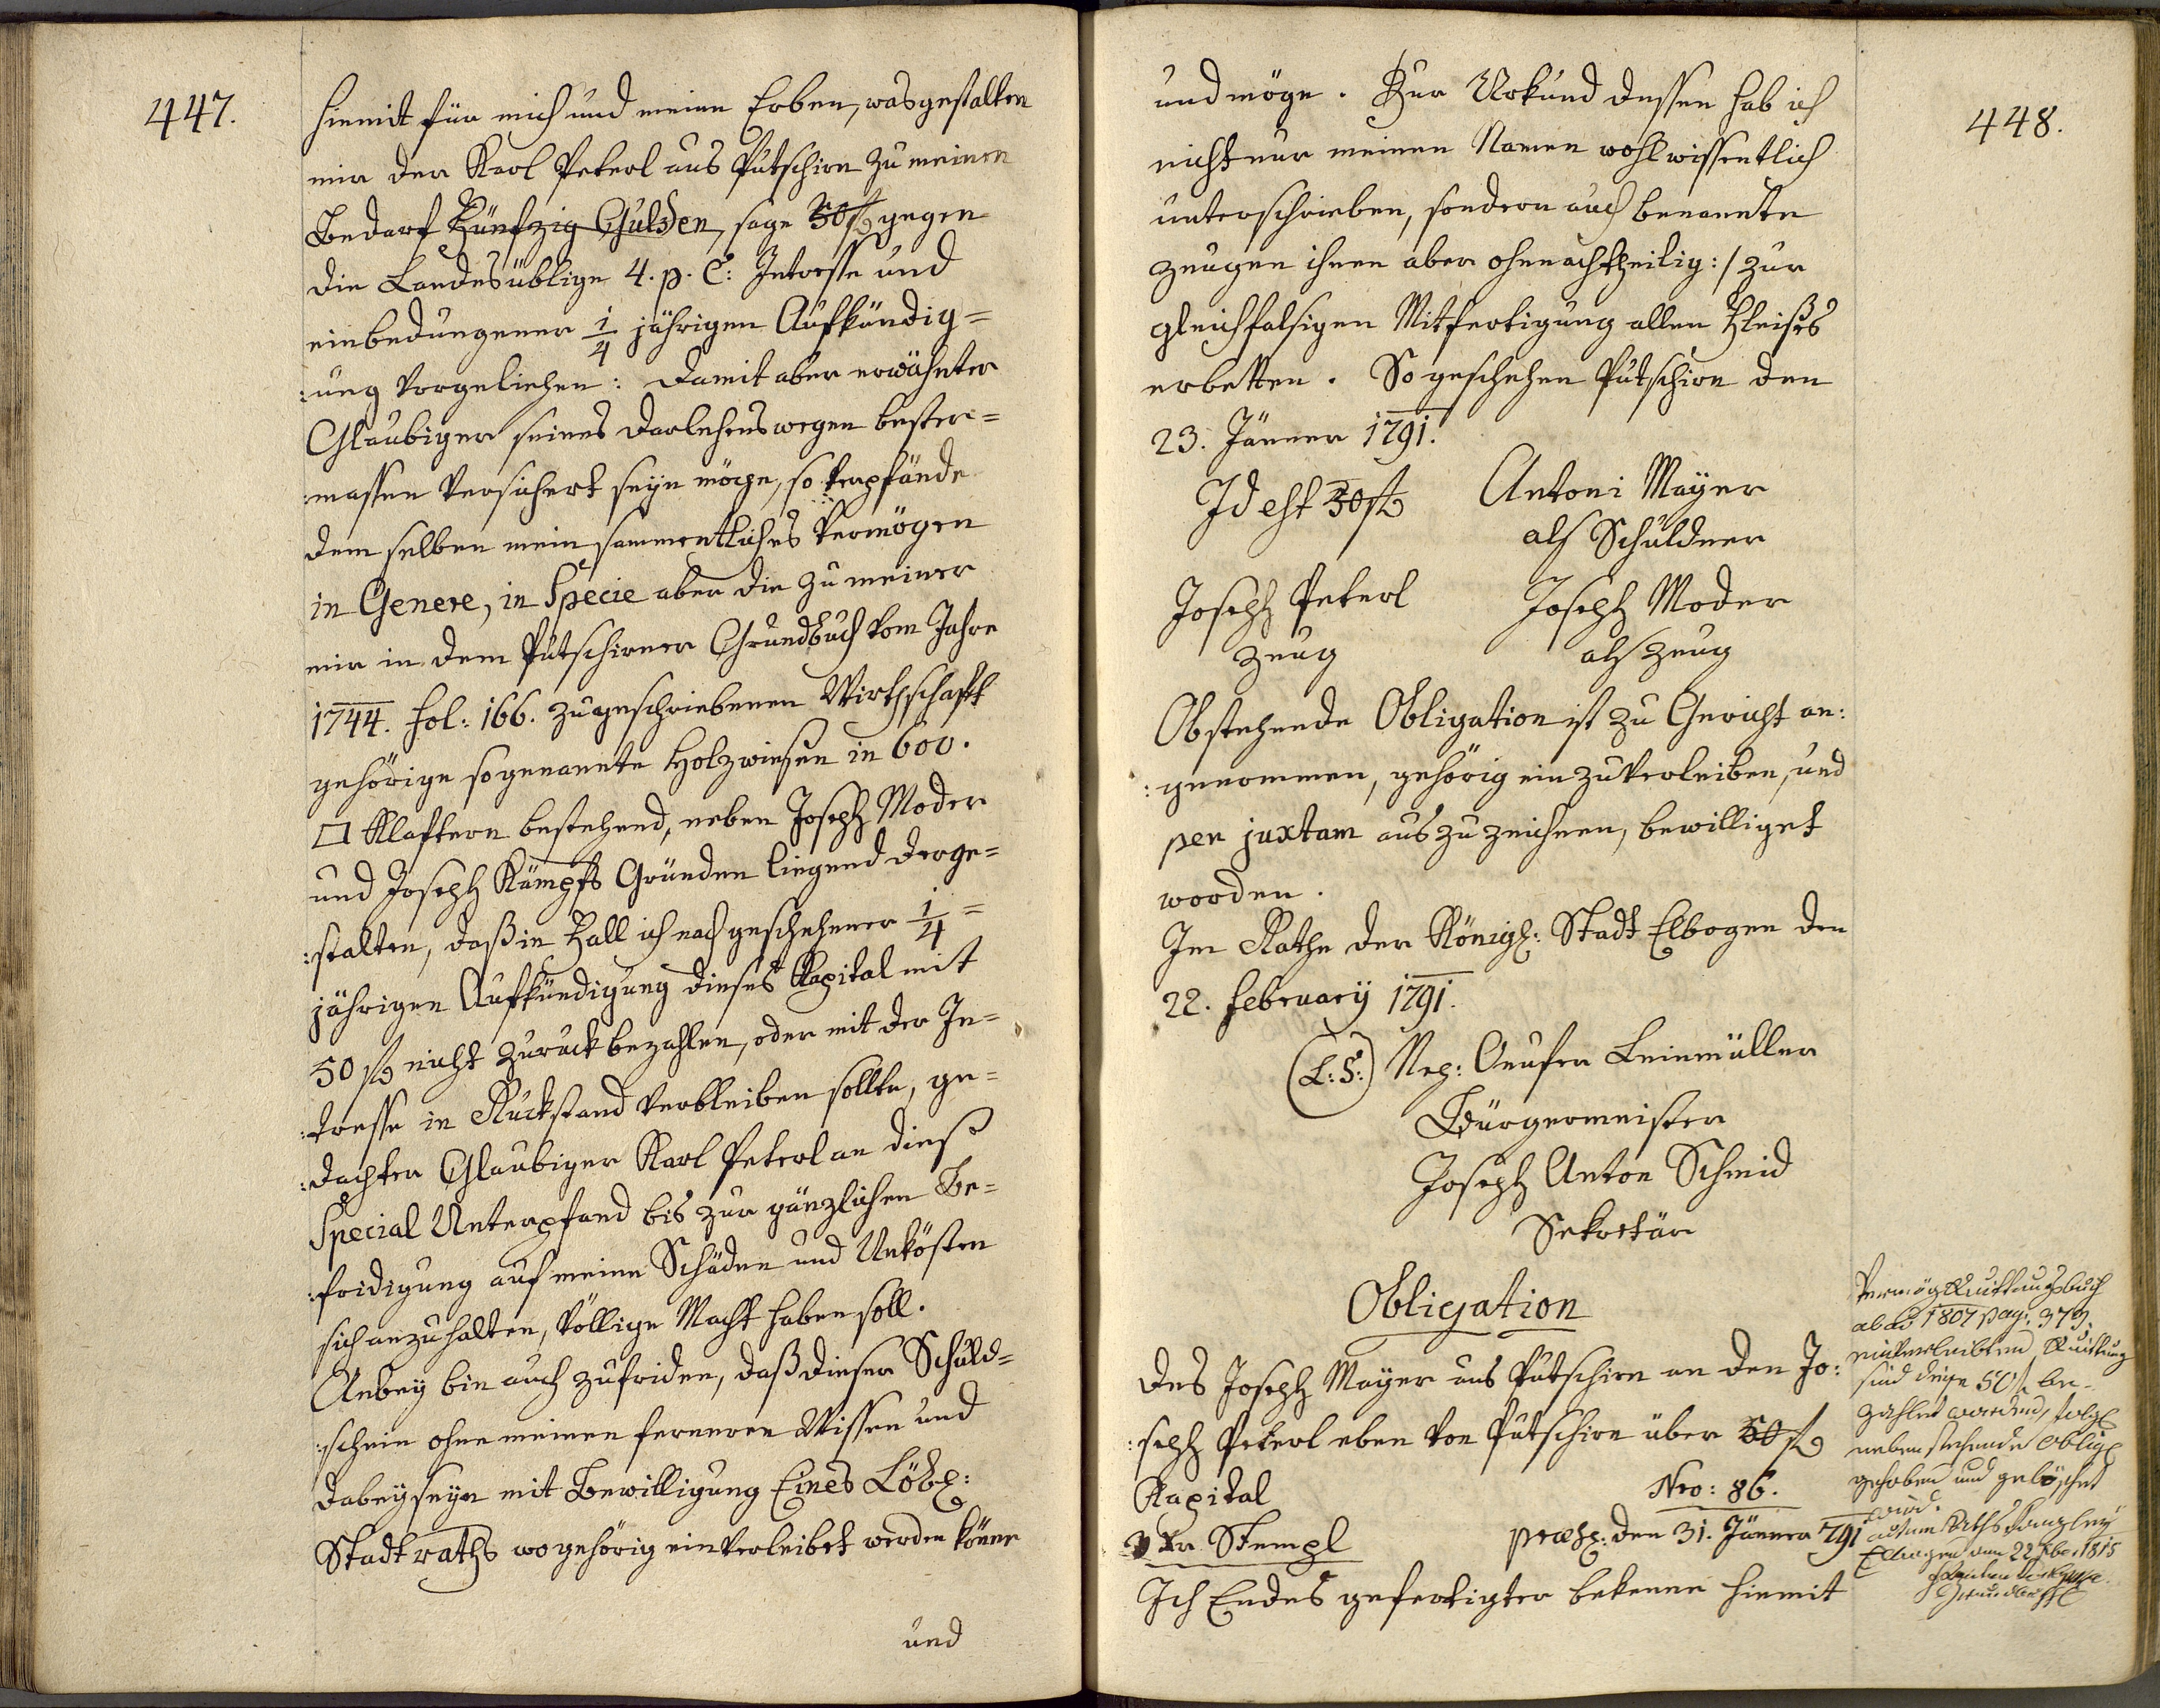 447.
hiemit für mich und meine Erben, was gestalten
mir der Karl Peterl aus Putschirn zu meinen
Bedarf Fünfzig Gulden, sage 50 f gegen
die Landesüblige 4. p. C: Intresse und
einbedungener 1/4 jährigen Aufkündig=
:ung vorgeliehen: Damit aber erwähnter
Glaubiger seines Darlehens wegen bester=
:massen versichert seyn möge, so verpfände
dem selben mein sammentliches Vermögen
in Genere, in Specie aber die zu meiner
mir in dem Putschirner Grundbuch vom Jahre
1744. fol: 166. zugeschriebenen Wirthschafft
gehörige sogenannte Holzwiesen in 600.
□ Klaftern bestehend, neben Joseph Moder
und Joseph Kämpfs Gründen liegend derge=
:stalten, daß in Fall ich nach geschehener 1/4 =
jährigen Aufkündigung dieses Kapital mit
50 f nicht zuruck bezahlen, oder mit der In=
:tresse in Ruckstand verbleiben sollte, ge=
:dachter Glaubiger Karl Peterl an dieß
Special Unterpfand bis zur gänzlichen Be=
:fridigung auf meine Schäden und Unkösten
sich anzuhalten, völlige Macht haben soll.
Anbey bin auch zufriden, daß dieser Schuld=
:schein ohne meinen ferneren Wissen und
dabeyseyn mit Bewilligung Eines Löbl:
Stadtraths wo gehörig einverleibet werden könne
und
448.
und möge. Zur Urkund dessen hab ich
nicht nur meinen Namen wohl wissentlich
unterschrieben, sondern auch benannte
zeugen ihnen aber ohnnachtheilig :/ zur
gleichfalsigen Mitfertigung allen Fleißes
erbetten. So geschehen Putschirn den
23. Jänner 1791.
Id est 50 f Antoni Mayer
als Schuldner
Joseph Peterl Joseph Moder
zeug als zeug
Obstehende Obligation ist zu Gericht an:
:genommen, gehörig einzuverleiben, und
per juxtam auszuzeichnen, bewilliget
worden.
Im Rathe der Königl: Stadt Elbogen den
22. February 1791.
(L:S:) Nep: Leinmüller
Bürgermeister
Joseph Anton Schmid
Sekretär
Obligation
des Joseph Mayer aus Putschirn an den Jo:
:seph Peterl eben von Putschirn über 50 f
Kapital Nro: 86.
3 Xr Stempl praes: den 31. Jänner 791
Ich Endes gefertigter bekenne hiemit
Vermög Quittungsbuch
ab ao 1807 pag: 379.
einverleibten Quittung
sind diese 50 f be-
zahlet worden, folgl
nebenstehende Oblig
gehoben und gelöschet
wird.
Rathskanzley
Elbogen den 22 1815